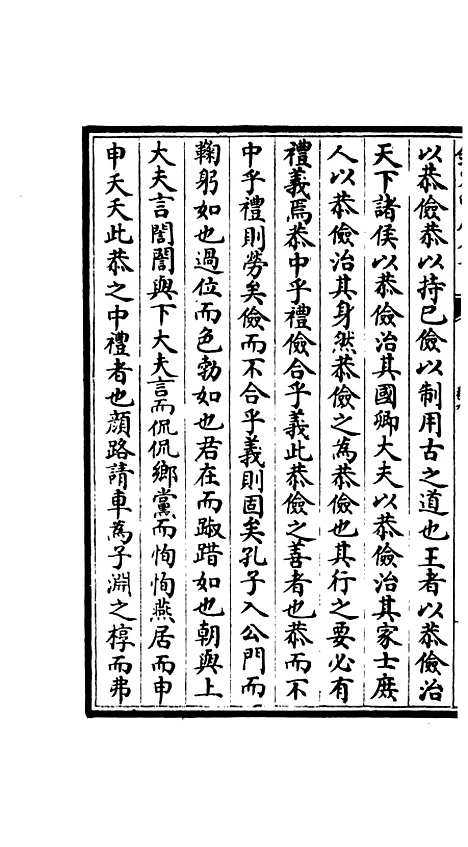 以恭儉恭以持己儉以制用古之道也王者以恭儉治
天下諸侯以恭儉治其國卿大夫以恭儉治其家士庶
人以恭儉治其身然恭儉之為恭儉也其行之要必有
禮義焉恭中乎禮儉合乎義此恭儉之善者也恭而不
中乎禮則勞矣儉而不合乎義則固矣孔子入公門而
鞠躬如也過位而色勃如也君在而踧踖如也朝與上
大夫言誾誾與下大夫言而侃侃鄉黨而恂恂燕居而申
申夭夭此恭之中禮者也顔路請車為子淵之椁而弗